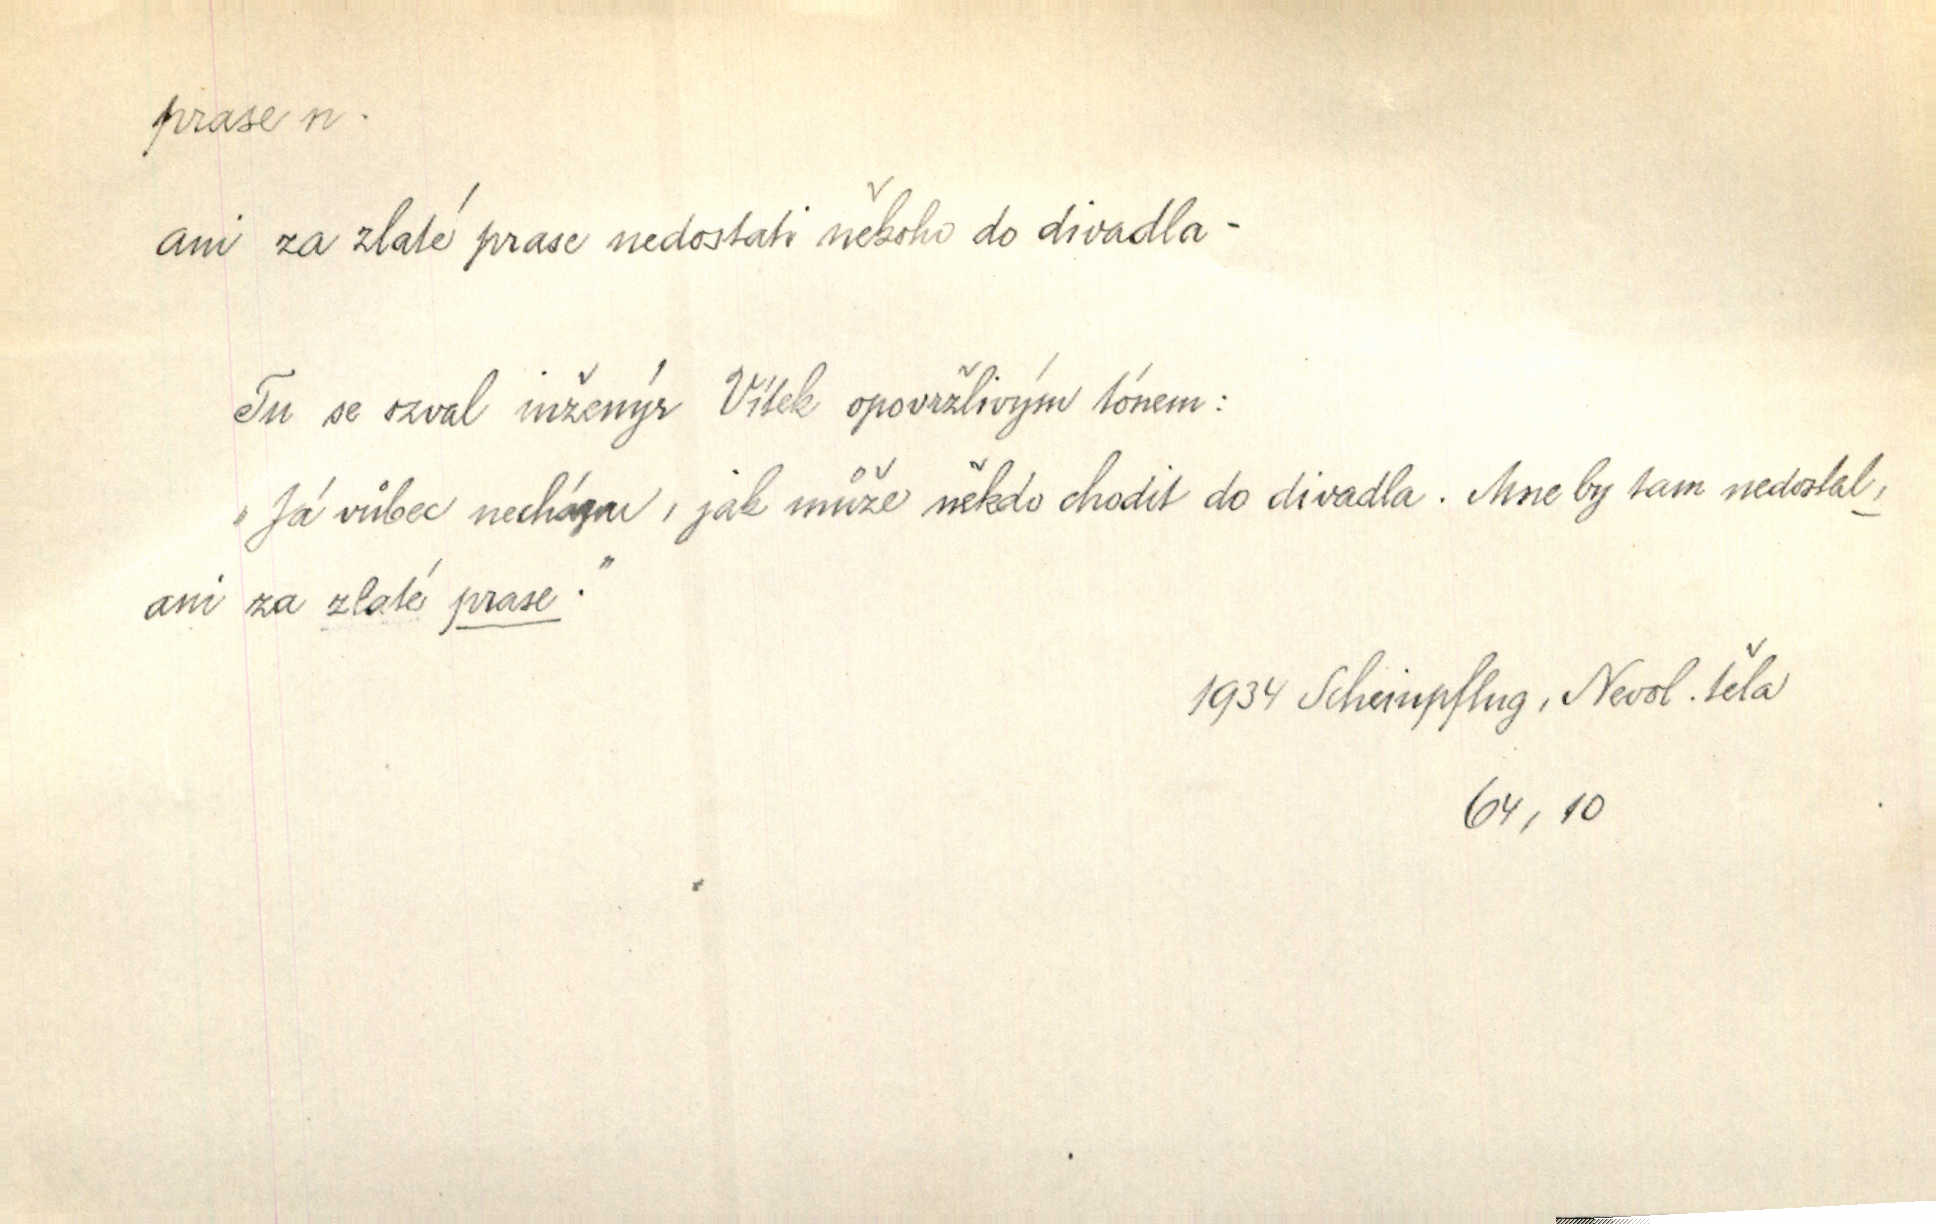 prase n.
ani za zlaté prase nedostati někoho do divadla -
Tu se ozval inženýr Vítek opovržlivým tónem:
"Já vůbec nechápu, jak může někdo chodit do divadla. Mne by tam nedostal,
ani za zlaté prase."
1934 Scheinpflug, Nevol. těla
64, 10